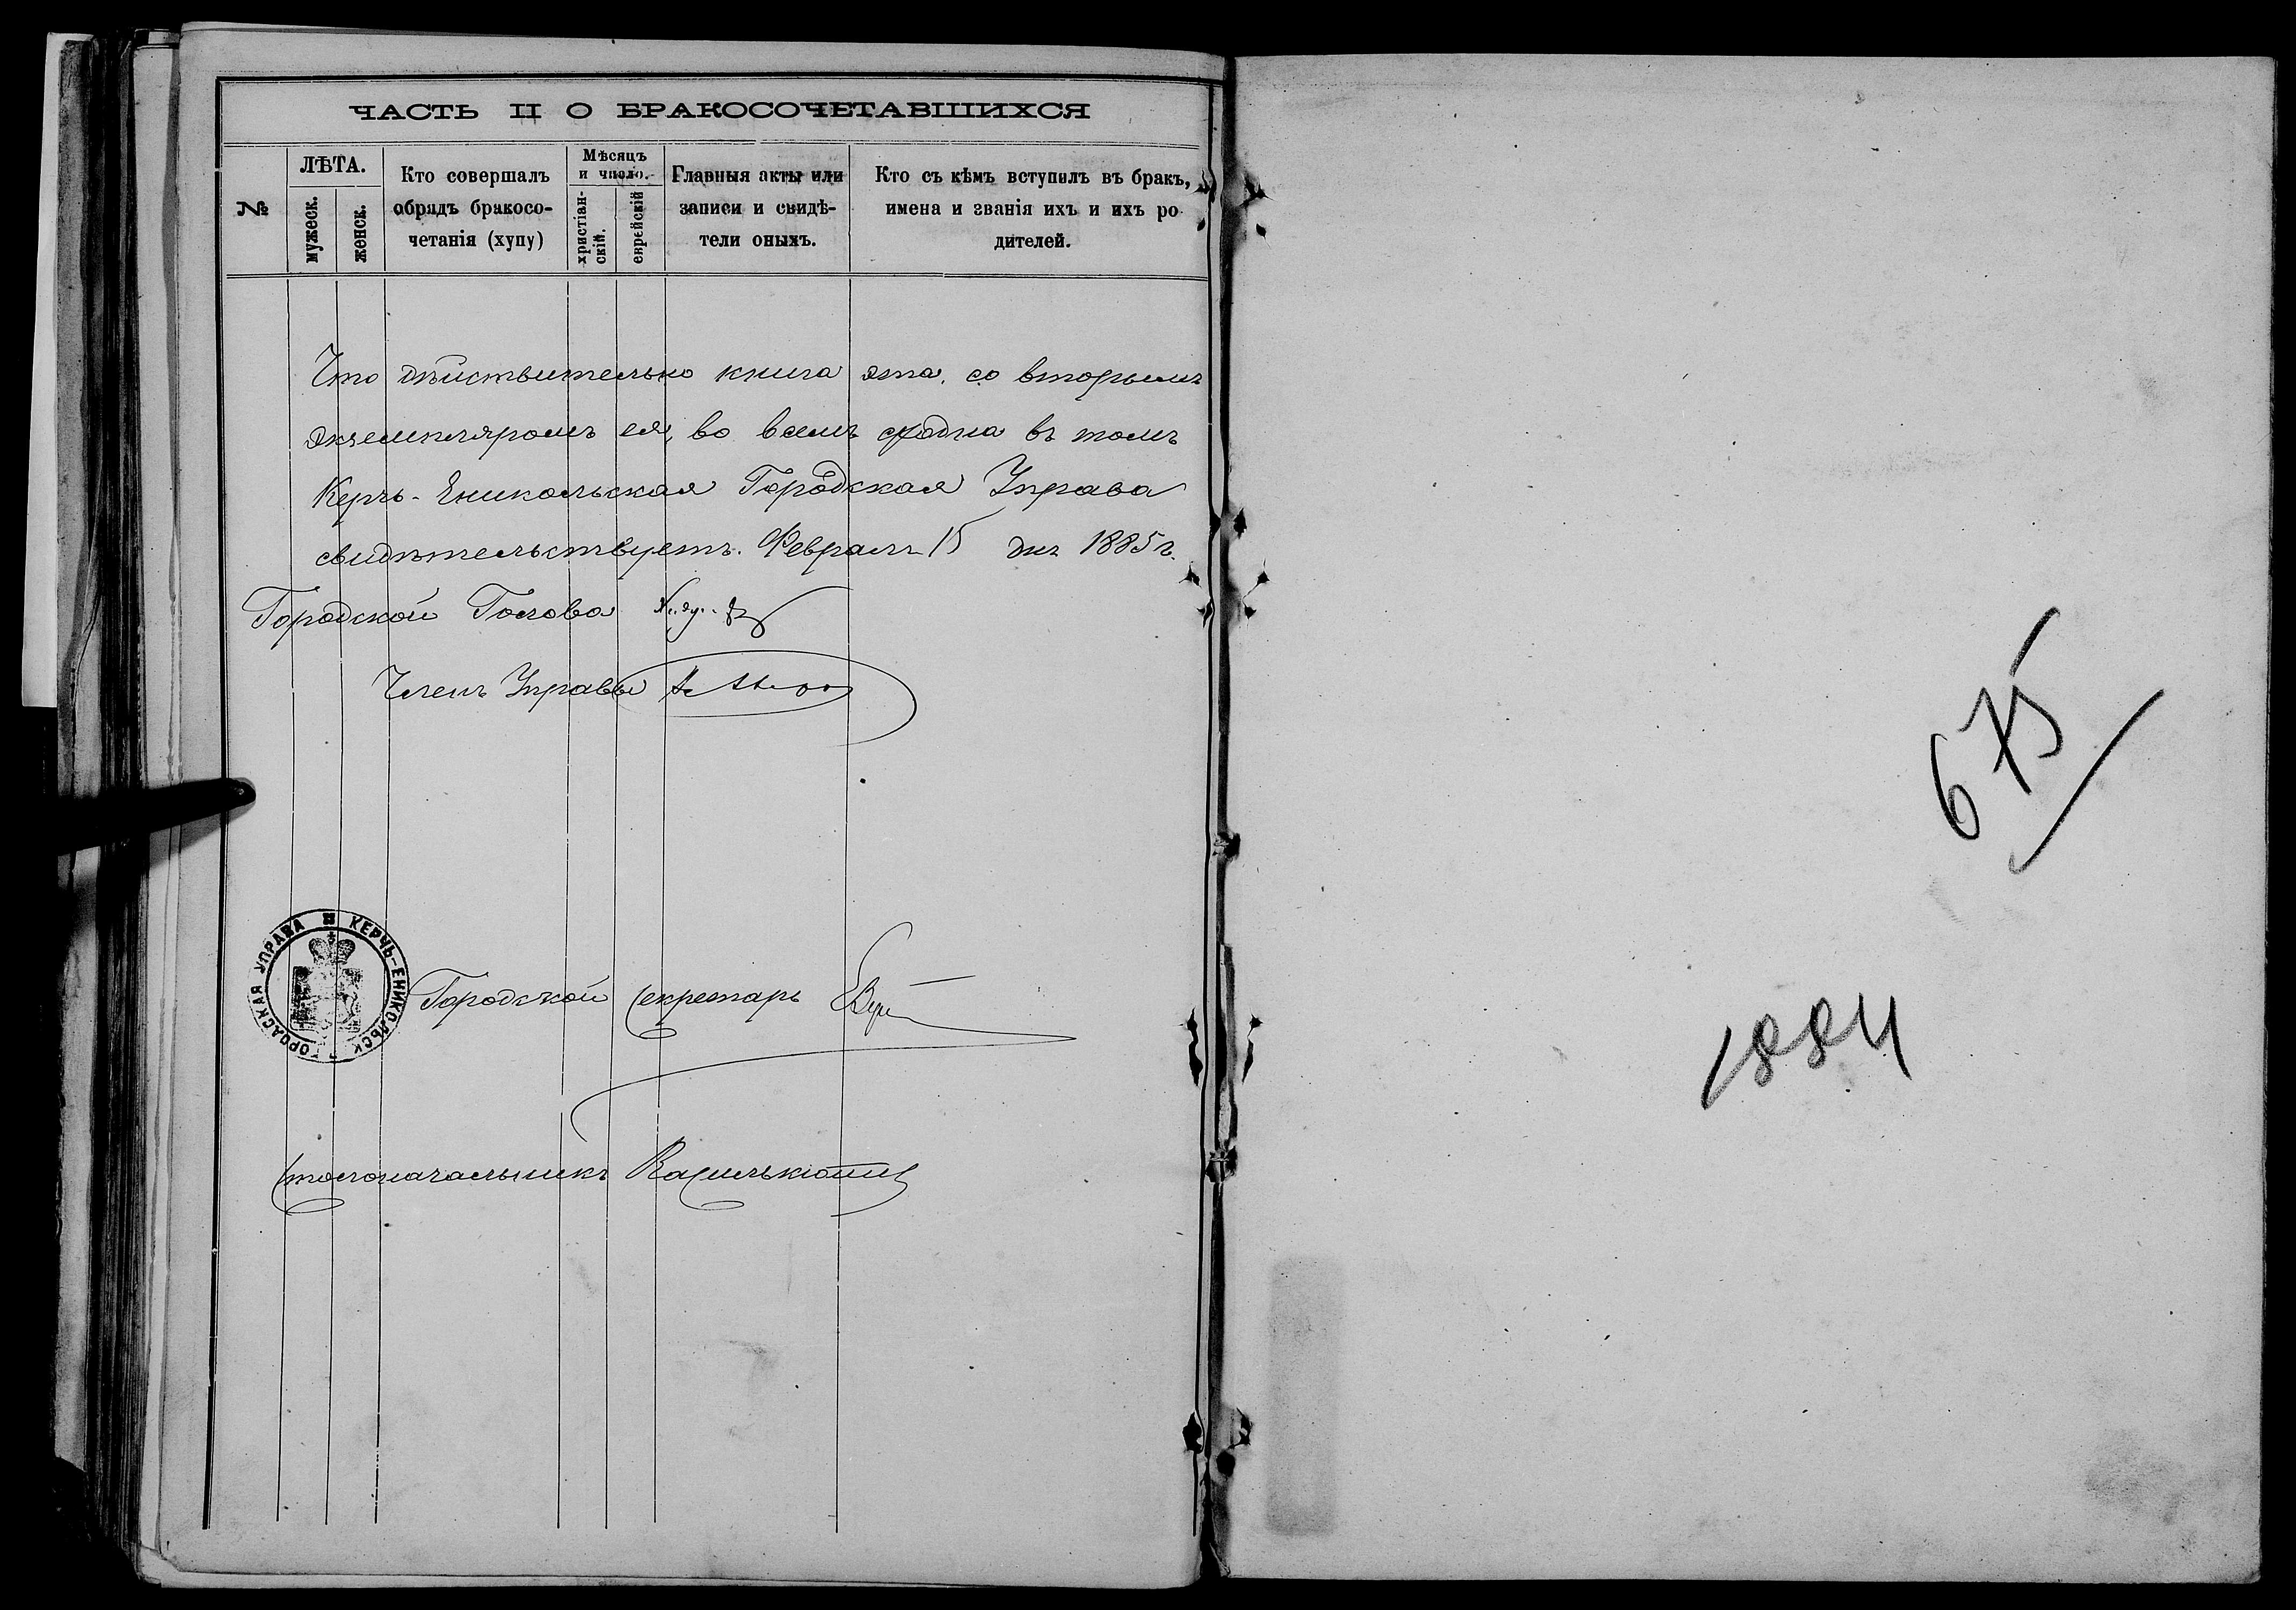 ЧАСТЬ II О БРАКОСОЧЕТАВШИХСЯ
№
ЛѢТА.
мужеск.
женск.
Кто совершалъ
обрядъ бракосо-
четанія (хупу)
Мѣсяцъ
и число.
христіан-
скій.
еврейскій
Главныя акты или
записи и свидѣ-
тели оныхъ.
Кто съ кѣмъ вступилъ въ бракъ,
имена и званія ихъ и ихъ ро
дителей.
Что дѣйствительно книга эта, со вторымъ
экземпляромъ ея, во всемъ сходна въ томъ
Керчь-Еникольская Городская Управа
свидѣтельствуетъ. Февраля 15 дня 1885 г.
Городской Голова
Членъ Управы
КЕРЧЬ-ЕНИКОЛЬСК ГОРОДСКАЯ УПРАВА
Городской Секретарь
Столоначальникъ
675
1884